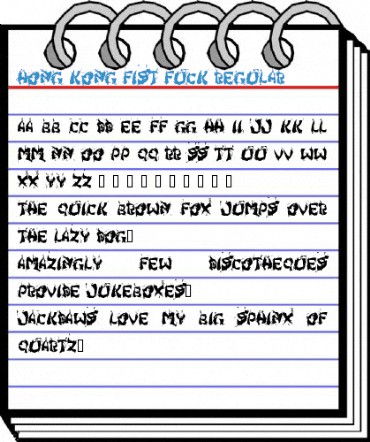 HONG KONG FIST FUCK REGULAR
AA BB CC DD EE FF GG HH II JJ KK LL
MM NN OO PP QQ RR SS TT UU VV WW
XX YY ZZ □ □ □ □ □ □ □ □ □ □
THE QUICK BROWN FOX JUMPS OVER
THE LAZY DOG□
AMAZINGLY FEW DISCOTHEQUES
PROVIDE JUKEBOXES□
JACKDAWS LOVE MY BIG SPHINX OF
QUARTZ□